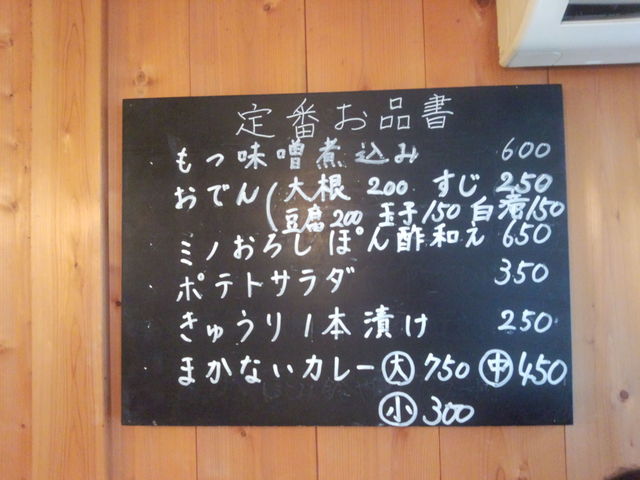 定番お品書
もつ味噌煮込み 600
おでん(大根 200 すじ 250
豆腐200 玉子150 白滝150
ミノおろしぽん酢和え 650
ポテトサラダ 350
きゅうり1本漬け 250
まかないカレー 大 750 中 450
小 300